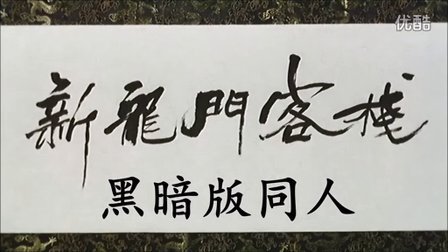 优酷
新龍門客棧
黑暗版同人